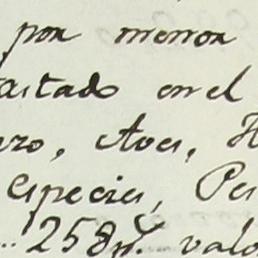 por menor
astado en el
ro, Aves, H
Especies, Pes
258 p.s valo